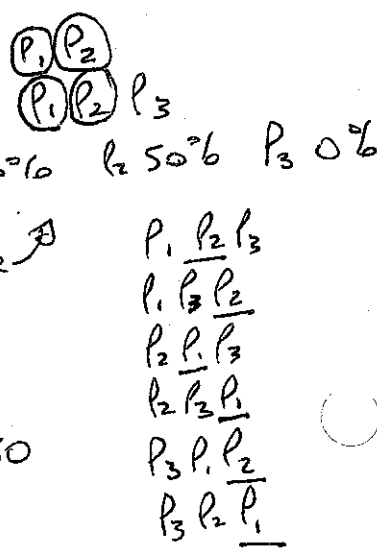 P₁ P₂
P₁ P₂ P₃
% P₂ 50% P₃ 0%
P₁ P₂ P₃
P₁ P₃ P₂
P₂ P₁ P₃
P₂ P₃ P₁
P₃ P₁ P₂
P₃ P₂ P₁